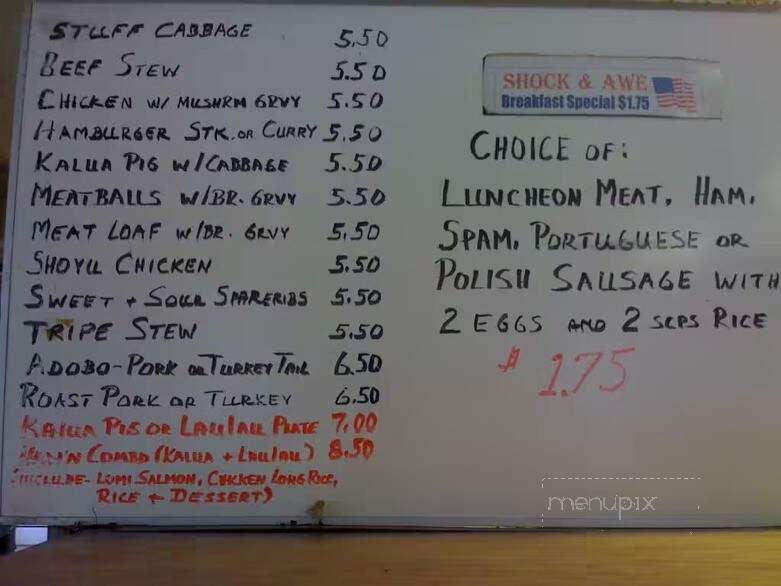 STUFF CABBAGE 5.50
BEEF STEW 5.50
CHICKEN W/ MUSHRM GRVY 5.50
HAMBURGER STK. OR CURRY 5.50
KALUA PIG W/CABBAGE 5.50
MEATBALLS W/BR. GRVY 5.50
MEAT LOAF W/BR. GRVY 5.50
SHOYU CHICKEN 5.50
SWEET + SOUR SPARERIBS 5.50
TRIPE STEW 5.50
ADOBO-PORK OR TURKEY TAIL 6.50
ROAST PORK OR TURKEY 6.50
KALUA PIG OR LAULAU PLATE 7.00
COMBO (KALUA + LAULAU) 8.50
INCLUDE- LOMI SALMON, CHICKEN LONG RICE,
RICE + DESSERT)
SHOCK & AWE
Breakfast Special $1.75
CHOICE OF:
LUNCHEON MEAT, HAM,
SPAM, PORTUGUESE OR
POLISH SAUSAGE WITH
2 EGGS AND 2 SCPS RICE
$ 1.75
menupix